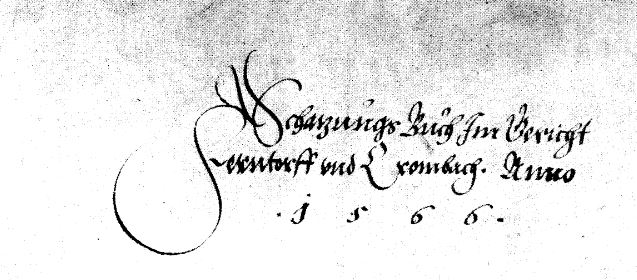 Schatzungs Buch Im Gericht
Ferntorff vnd Crombach. Anno
. 1 5 6 6 .